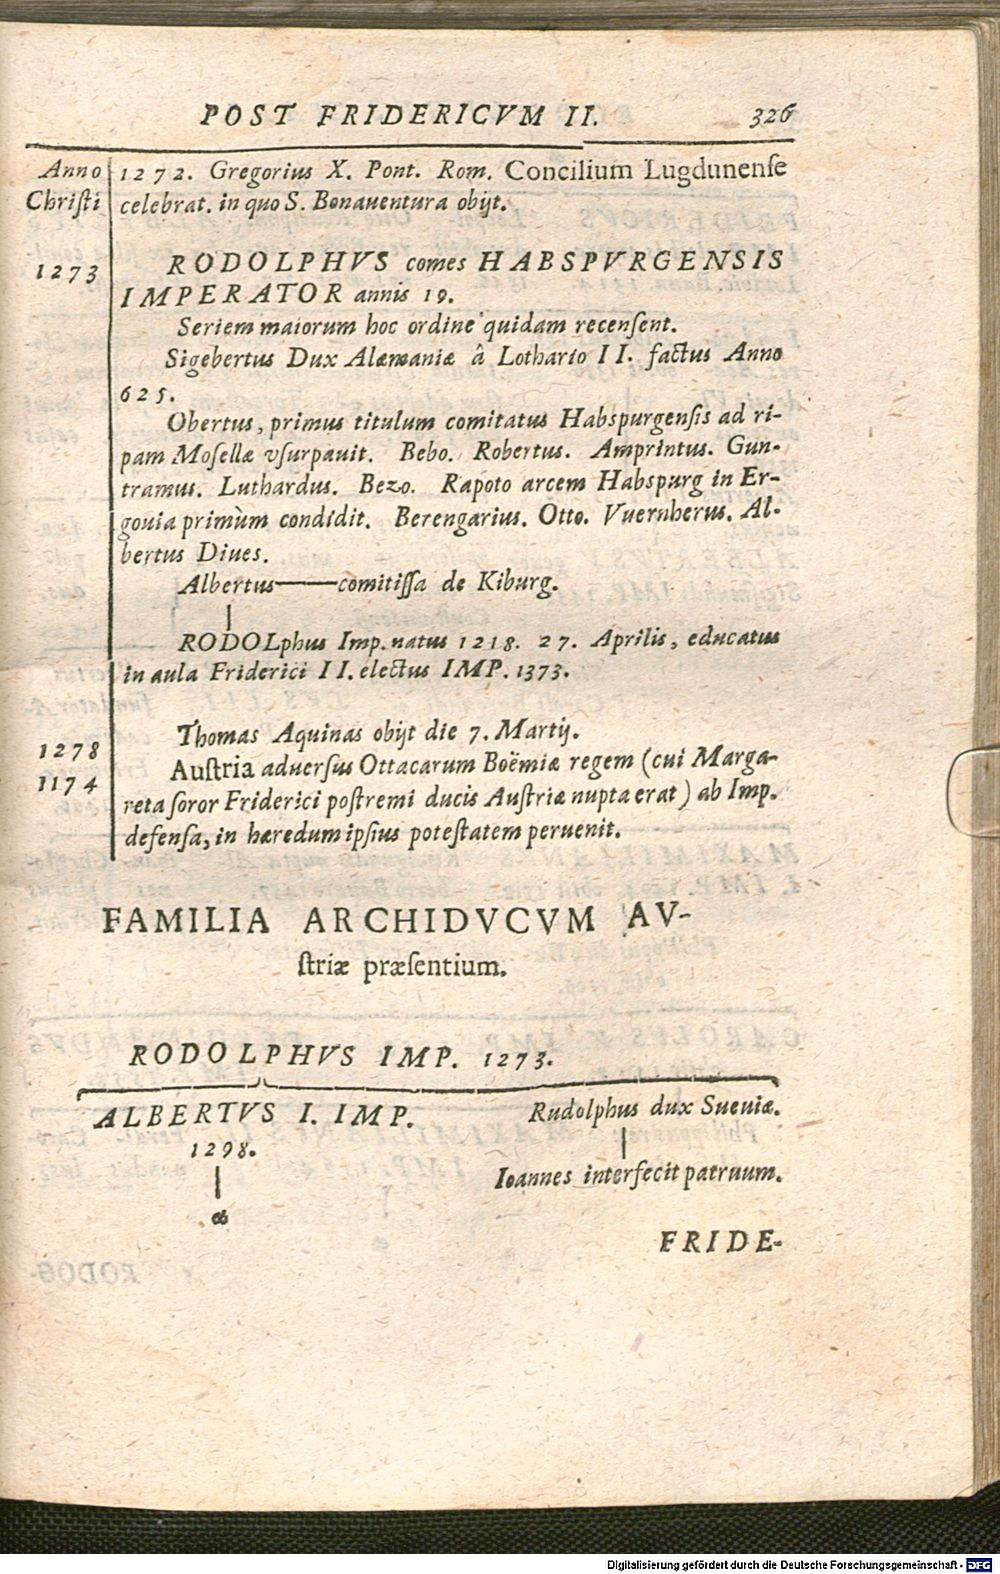 POST FRIDERICVM II. 326
Anno 1272. Gregorius X. Pont. Rom. Concilium Lugdunenſe
Chriſti celebrat. in quo S. Bonauentura obijt.
1273 RODOLPHVS comes HABSPVRGENSIS
IMPERATOR annis 19.
Seriem maiorum hoc ordine quidam recenſent.
Sigebertus Dux Alæmaniæ â Lothario II. factus Anno
625.
Obertus, primus titulum comitatus Habspurgenſis ad ri-
pam Moſellæ vſurpauit. Bebo. Robertus. Amprintus. Gun-
tramus. Luthardus. Bezo. Rapoto arcem Habspurg in Er-
gouia primùm condidit. Berengarius. Otto. Vuernherus. Al-
bertus Diues.
Albertus——comitiſſa de Kiburg.
RODOLphus Imp. natus 1218. 27. Aprilis, educatus
in aula Friderici II. electus IMP. 1373.
Thomas Aquinas obijt die 7. Martij.
1278
Auſtria adverſus Ottacarum Boëmiæ regem (cui Marga-
1174
reta ſoror Friderici poſtremi ducis Auſtriæ nupta erat) ab Imp.
defenſa, in hæredum ipſius poteſtatem peruenit.
FAMILIA ARCHIDVCVM AV-
ſtriæ præſentium.
RODOLPHVS IMP. 1273.
ALBERTVS I. IMP. Rudolphus dux Sueuiæ.
1298.
Ioannes interfecit patruum.
FRIDE-
Digitalisierung gefördert durch die Deutsche Forschungsgemeinschaft - DFG